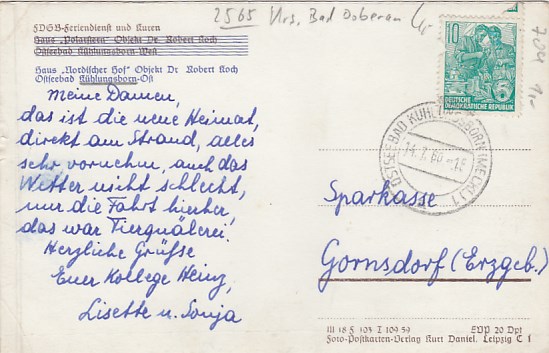 2565 Krs. Bad Doberan
FDGB-Feriendienst und Kuren
Haus „Polarstern“ Objekt Dr. Robert Koch
Ostseebad Kühlungsborn-West
Haus „Nordischer Hof“ Objekt Dr. Robert Koch
Ostseebad Kühlungsborn-Ost
Meine Damen,
das ist die neue Heimat,
direkt am Strand, alles
sehr vornehm, auch das
Wetter nicht schlecht,
nur die Fahrt hierher,
das war Tierquälerei.
Herzliche Grüsse
Euer Kollege Heinz,
Lisette u. Sonja
10
DEUTSCHE
DEMOKRATISCHE REPUBLIK
OSTSEEBAD KÜHLUNGSBORN (MECKL) 1
14.7.60
704
Sparkasse
Gornsdorf (Erzgeb.)
III 18 F 103 T 109 59 EVP 20 Dpt
Foto-Postkarten-Verlag Kurt Daniel, Leipzig C 1